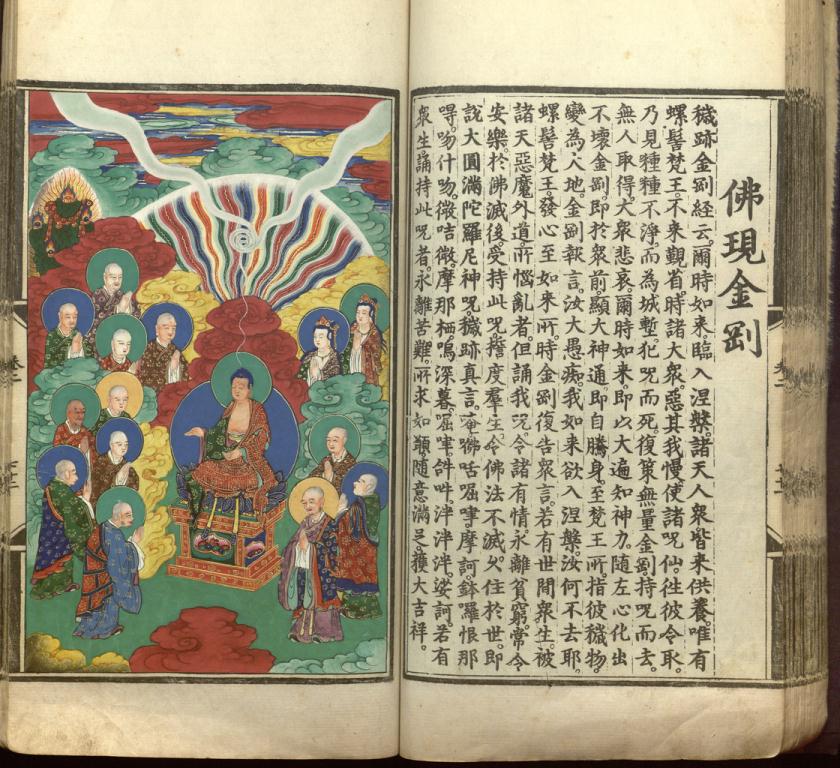 佛現金剛
穢跡金剛經云。爾時如來。臨入涅槃。諸天人衆。皆來供養。唯有
螺髻梵王。不來覲省。時諸大衆。惡其我慢。使諸呪仙。往彼令取。
乃見種種不淨。而為城塹。犯呪而死。復策無量金剛。持呪而去。
無人取得。大衆悲哀。爾時如來。即以大遍知神力。隨左心化出
不壞金剛。即於衆前。顯大神通。即自騰身。至梵王所。指彼穢物。
變為大地。金剛報言。汝大愚痴。我如來欲入涅槃。汝何不去耶。
螺髻梵王。發心至如來所。時金剛復告衆言。若有世間衆生。被
諸天惡魔外道。所惱亂者。但誦我呪。令諸有情。永離貧窮。常令
安樂。於佛滅後。受持此呪。誓度羣生。令佛法不滅。久住於世。即
說大圓滿陀羅尼神呪。穢跡真言。唵咶啒。摩訶鉢囉恨那
吻什吻。微咭微。摩那栖。嗚深暮。啒泮泮泮。娑訶。若有
衆生。誦持此呪者。永離苦難。所求如願。隨意滿足。獲大吉祥。